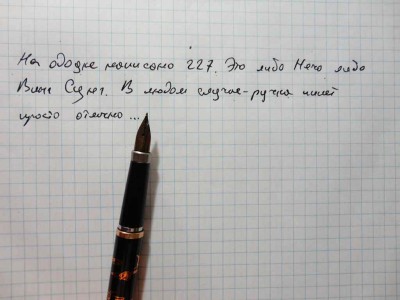 На ободке написано 227. Это либо Неро либо
Винг Сунг. В любом случае-ручка пишет
просто отлично...